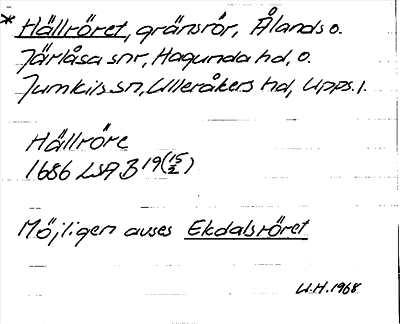 * Hällröret, gränsrör, Ålands o.
Järlåsa snr, Hagunda hd, o.
Jumkils sn, Ulleråkers hd, Upps. l.
Hällröre
1686 LSA B 19 (15/2)
Möjligen avses Ekdalsröret
U.H. 1968